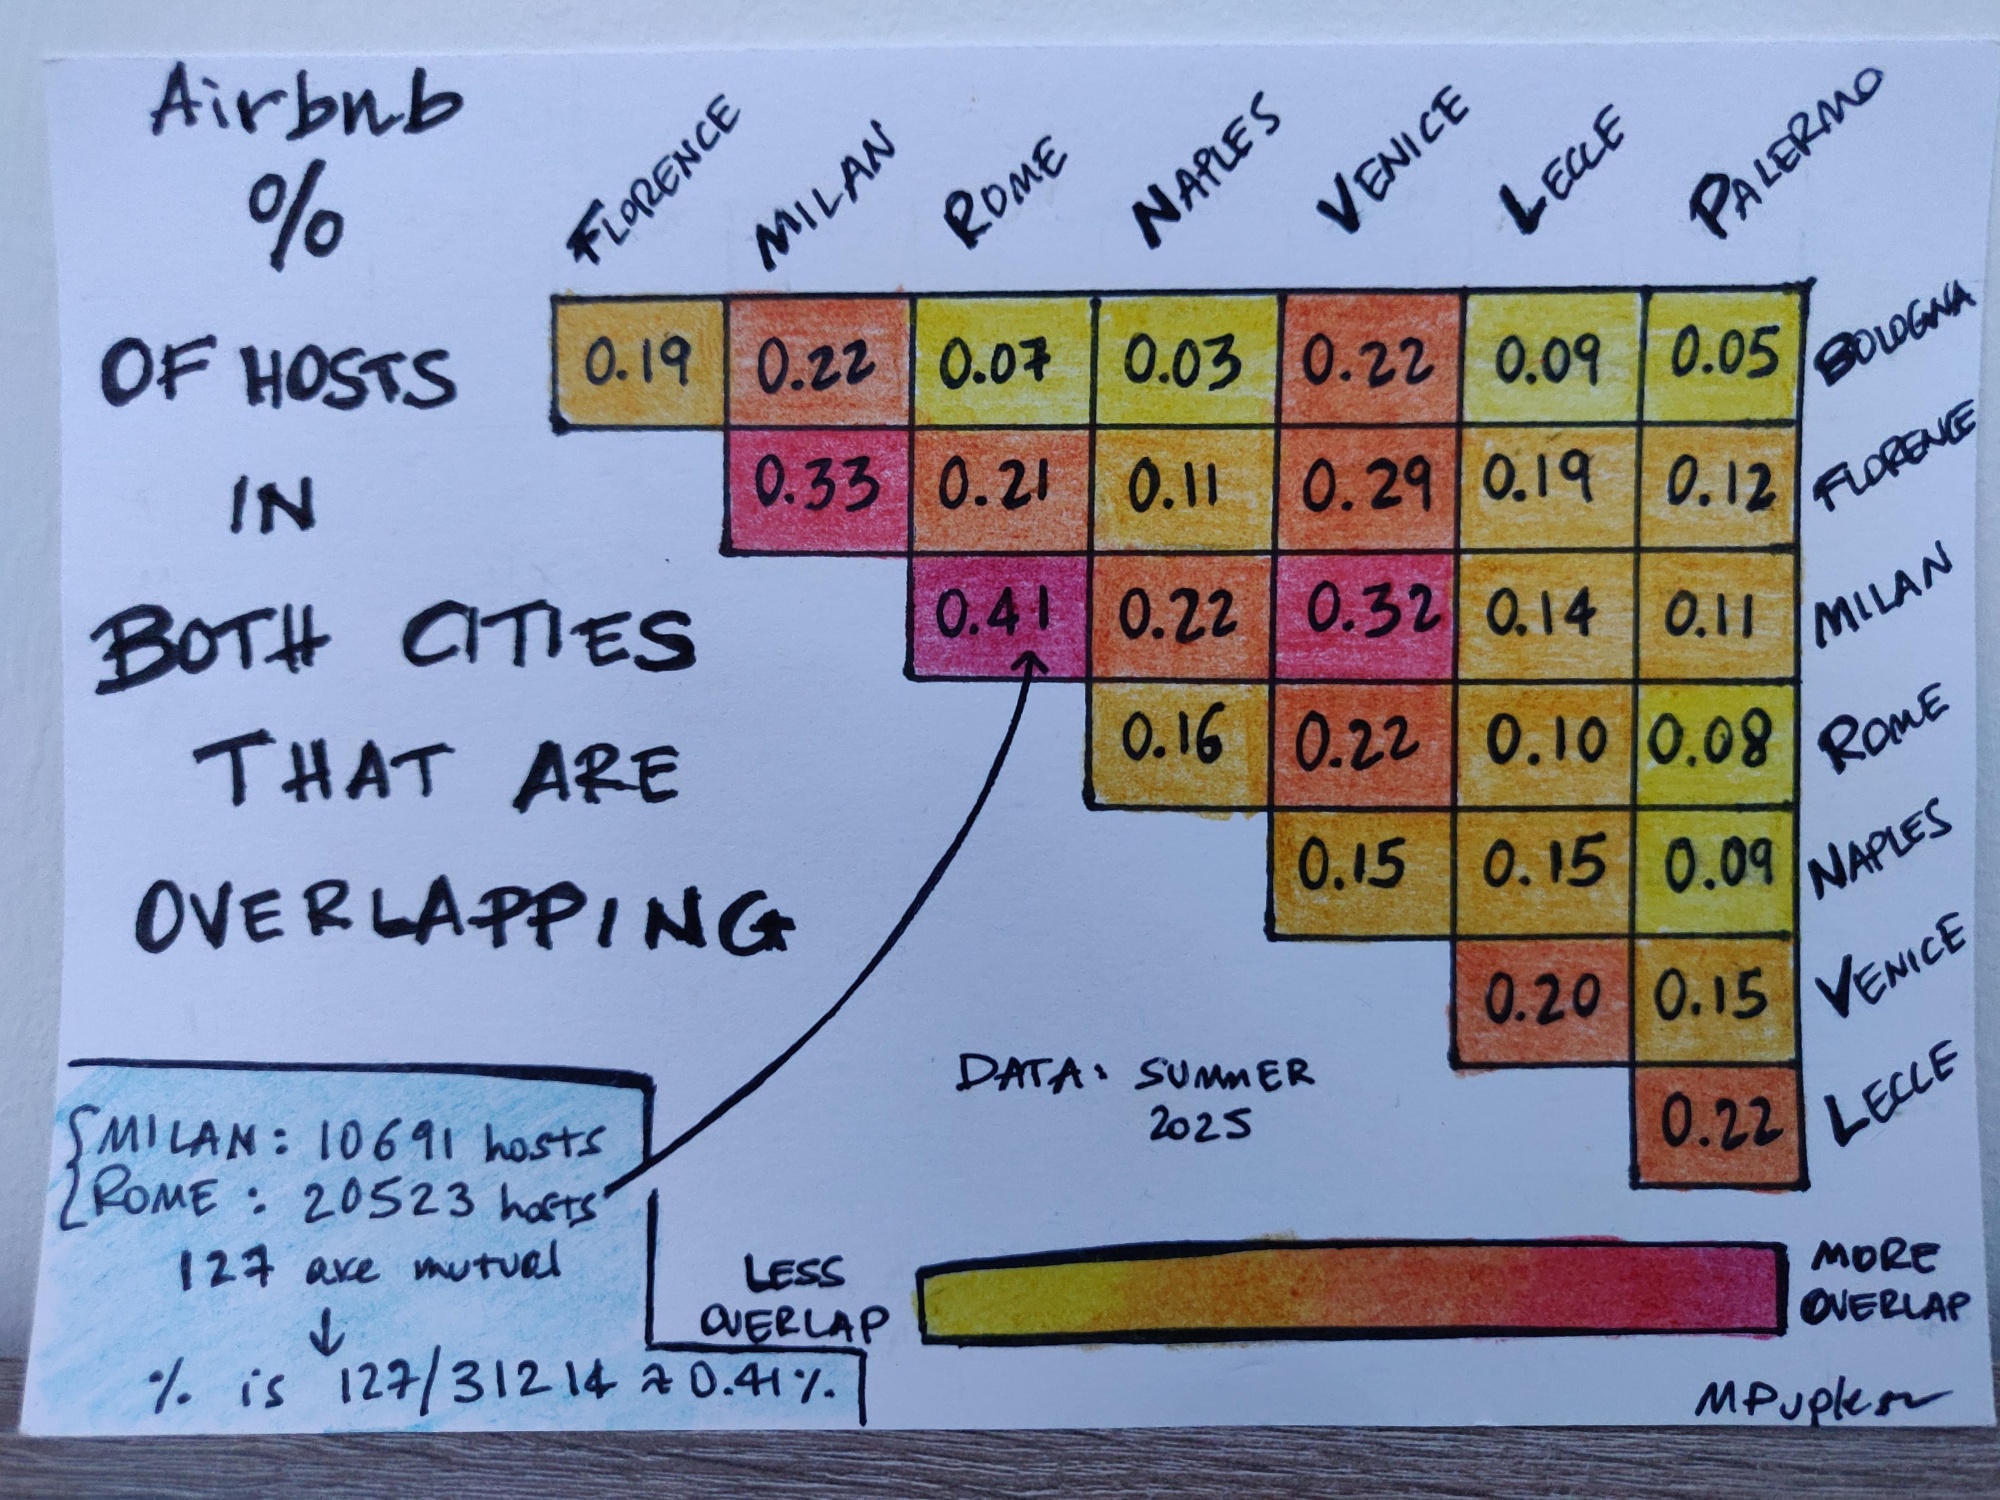 Airbnb
%
OF HOSTS
IN
BOTH CITIES
THAT ARE
OVERLAPPING
FLORENCE MILAN ROME NAPLES VENICE LECCE PALERMO
0.19 0.22 0.07 0.03 0.22 0.09 0.05 BOLOGNA
0.33 0.21 0.11 0.29 0.19 0.12 FLORENCE
0.41 0.22 0.32 0.14 0.11 MILAN
0.16 0.22 0.10 0.08 ROME
0.15 0.15 0.09 NAPLES
0.20 0.15 VENICE
0.22 LECCE
DATA: SUMMER
2025
MILAN: 10691 hosts
ROME: 20523 hosts
127 are mutual
↓
% is 127/31214 ≈ 0.41%.
LESS
OVERLAP
MORE
OVERLAP